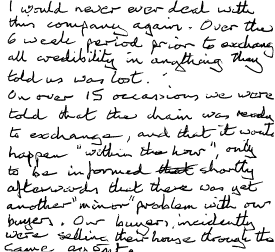 I would never ever deal with
this company again. Over the
6 week period prior to exchange
all credibility in anything they
told us was lost.
On over 15 occassions we were
told that the chain was ready
to exchange, and that it would
happen "within the hour", only
to be informed that shortly
afterwards that there was yet
another "minor" problem with our
buyers. Our buyers, incidently
were selling their house through the
same agents